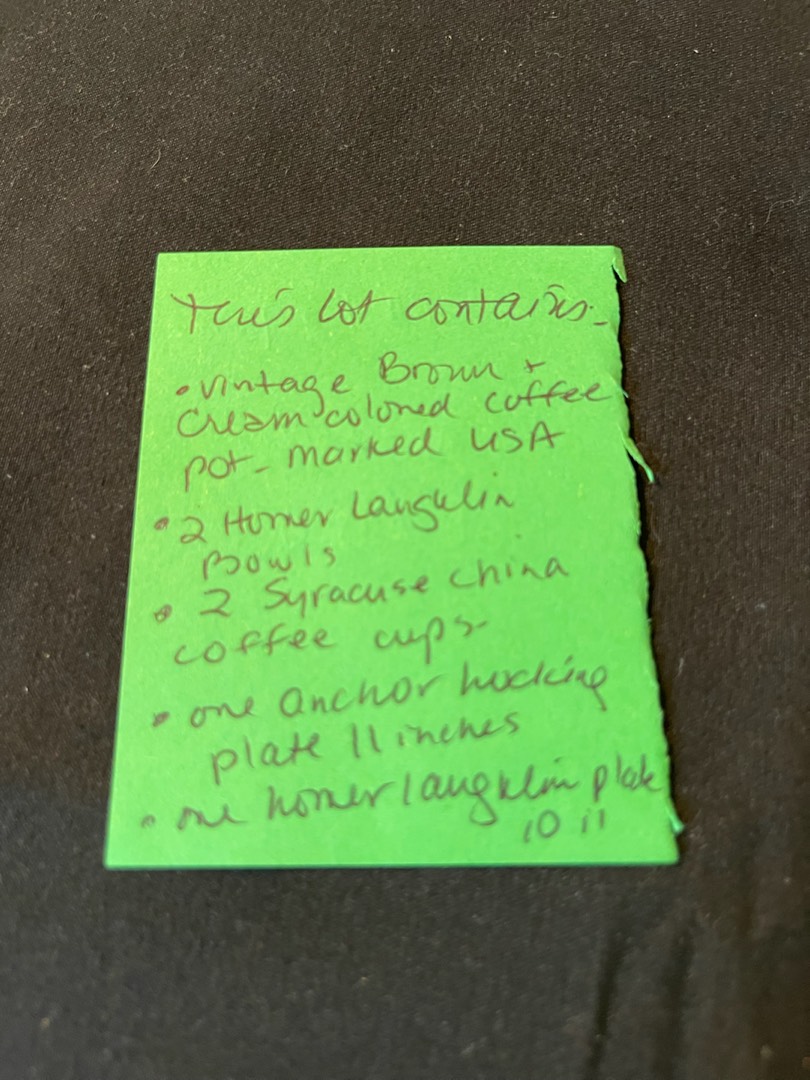 This lot contains-
• vintage Brown +
Cream colored coffee
pot - marked USA
• 2 Homer Laughlin
Bowls
• 2 Syracuse china
coffee cups-
• one anchor hocking
plate 11 inches
• one homer laughlin plate
10 "